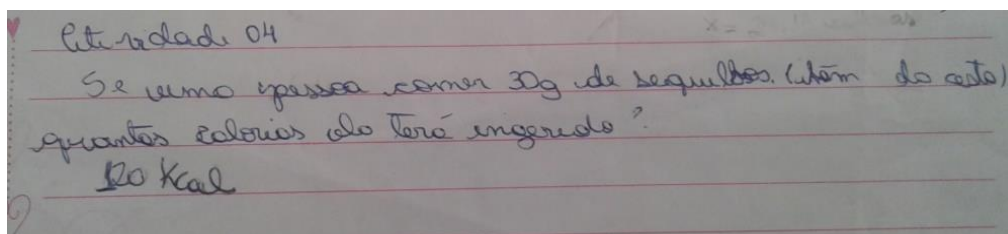 Atividade 04
Se uma pessoa comer 30g de sequilhos. (item da cesta)
quantas calorias ela terá ingerido?
120 Kcal